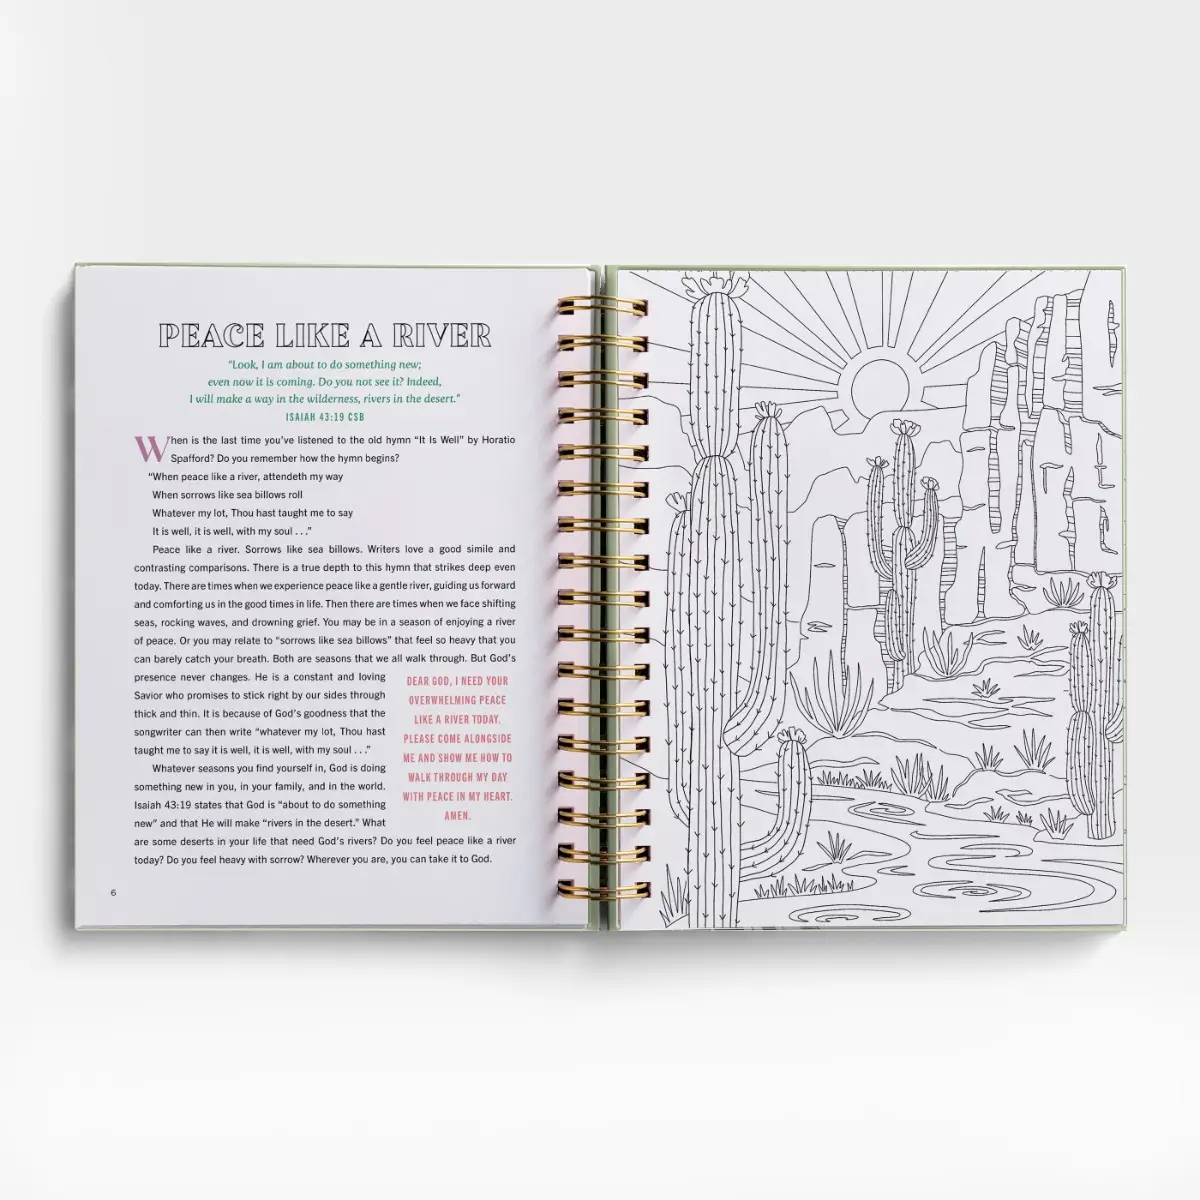 PEACE LIKE A RIVER
“Look, I am about to do something new;
even now it is coming. Do you not see it? Indeed,
I will make a way in the wilderness, rivers in the desert.”
ISAIAH 43:19 CSB
When is the last time you’ve listened to the old hymn “It Is Well” by Horatio
Spafford? Do you remember how the hymn begins?
“When peace like a river, attendeth my way
When sorrows like sea billows roll
Whatever my lot, Thou hast taught me to say
It is well, it is well, with my soul . . .”
Peace like a river. Sorrows like sea billows. Writers love a good simile and
contrasting comparisons. There is a true depth to this hymn that strikes deep even
today. There are times when we experience peace like a gentle river, guiding us forward
and comforting us in the good times in life. Then there are times when we face shifting
seas, rocking waves, and drowning grief. You may be in a season of enjoying a river
of peace. Or you may relate to “sorrows like sea billows” that feel so heavy that you
can barely catch your breath. Both are seasons that we all walk through. But God’s
presence never changes. He is a constant and loving
Savior who promises to stick right by our sides through
thick and thin. It is because of God’s goodness that the
songwriter can then write “whatever my lot, Thou hast
taught me to say it is well, it is well, with my soul . . .”
Whatever seasons you find yourself in, God is doing
something new in you, in your family, and in the world.
Isaiah 43:19 states that God is “about to do something
new” and that He will make “rivers in the desert.” What
are some deserts in your life that need God’s rivers? Do you feel peace like a river
today? Do you feel heavy with sorrow? Wherever you are, you can take it to God.
DEAR GOD, I NEED YOUR
OVERWHELMING PEACE
LIKE A RIVER TODAY.
PLEASE COME ALONGSIDE
ME AND SHOW ME HOW TO
WALK THROUGH MY DAY
WITH PEACE IN MY HEART.
AMEN.
6